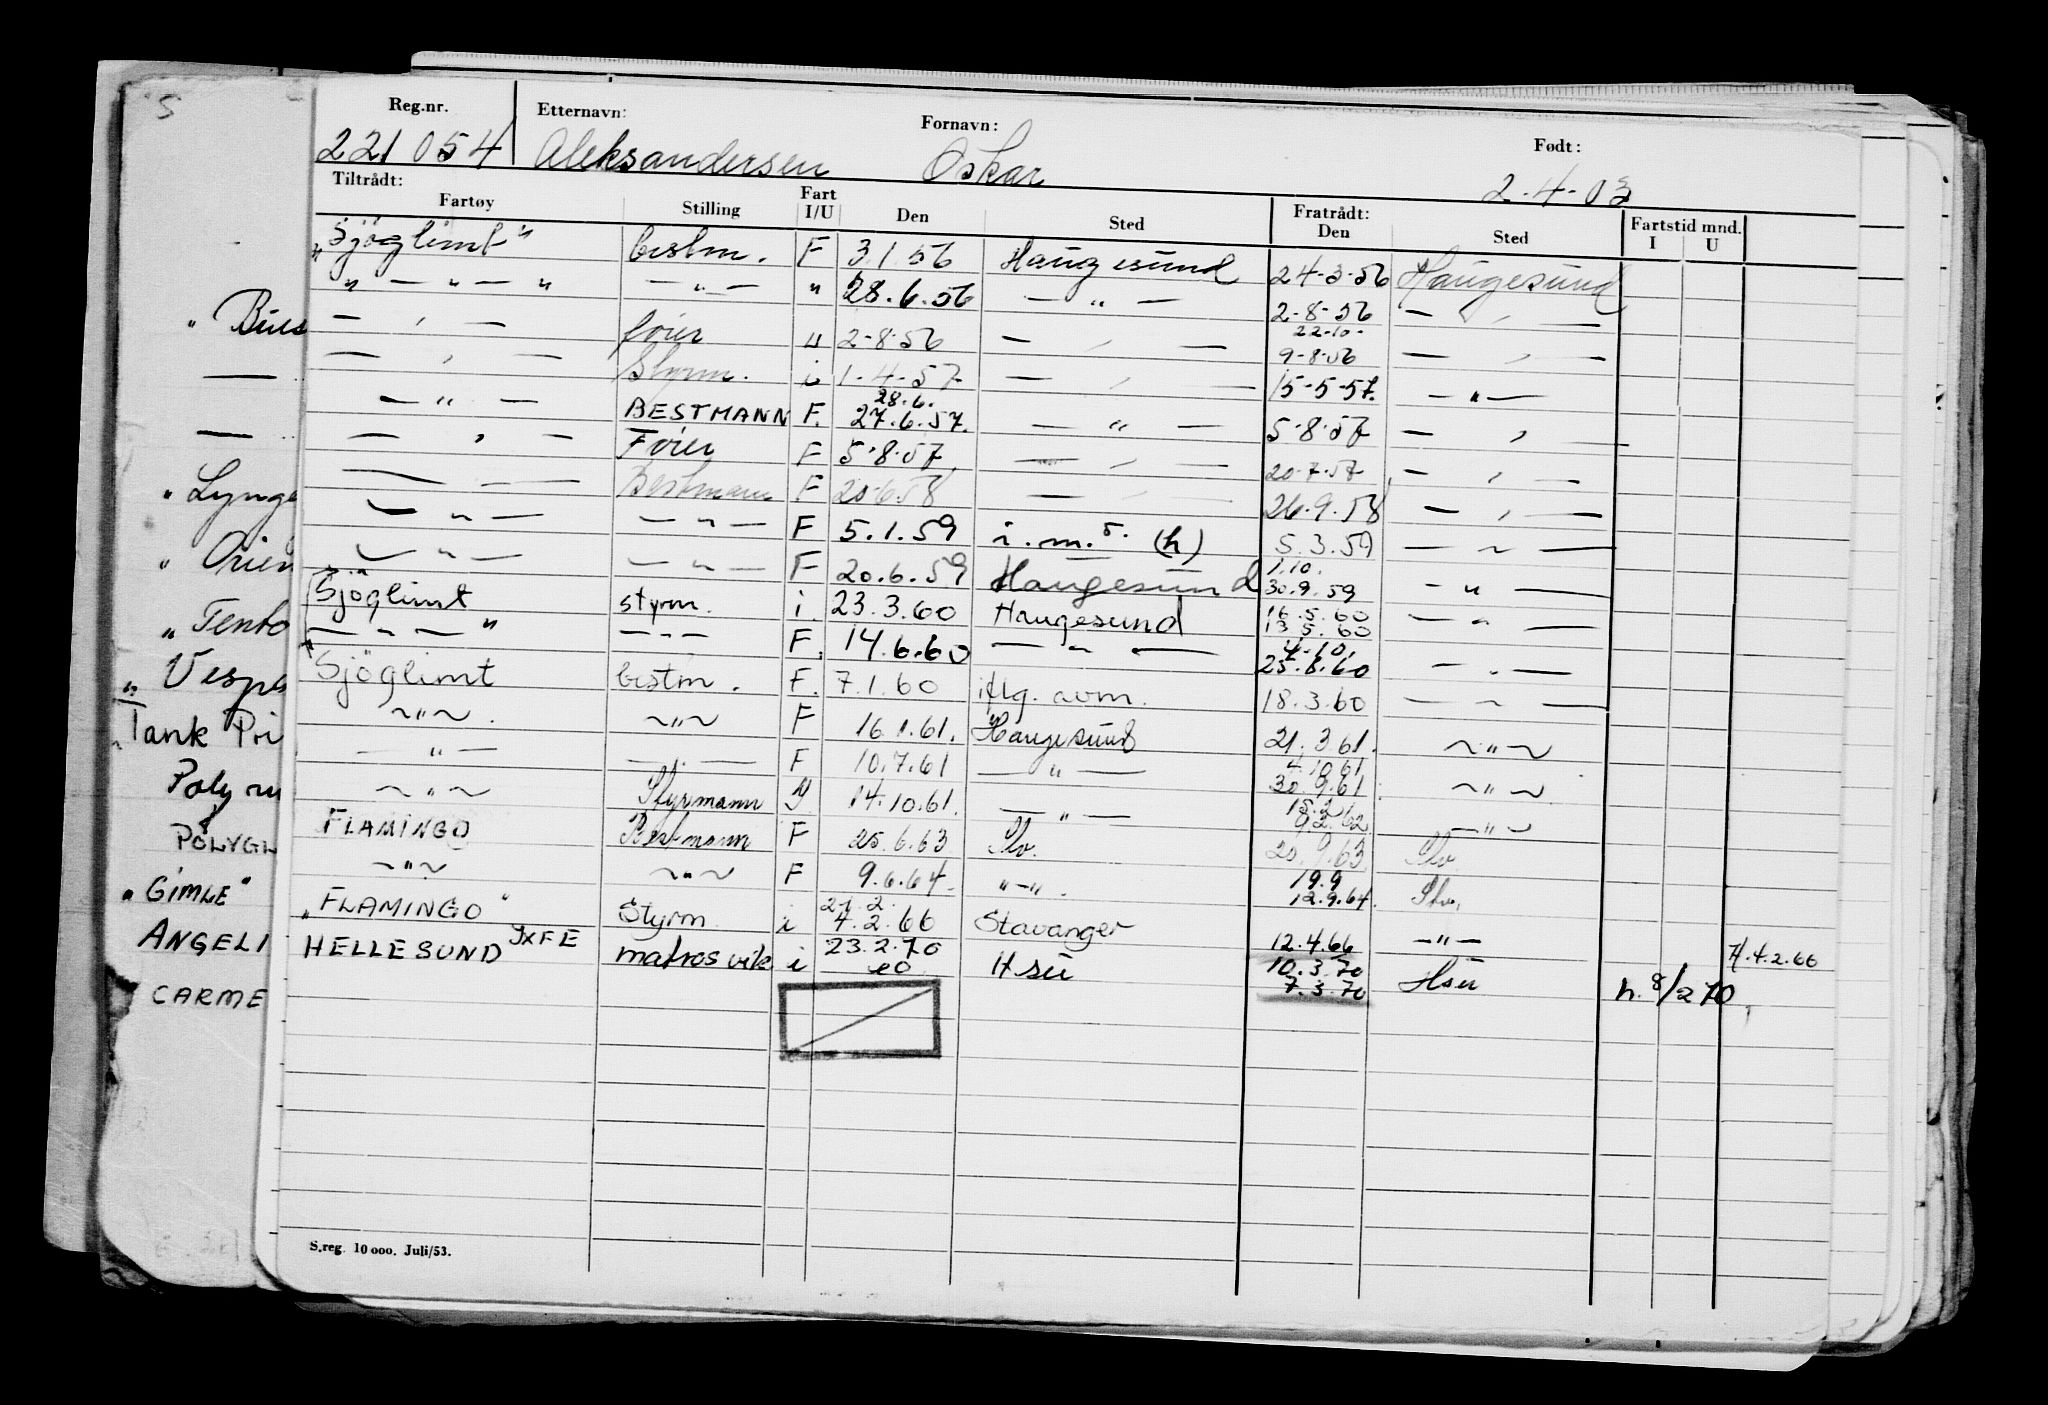 Reg.nr. Etternavn: Fornavn: Født:
221054 Aleksandersen Oskar 2-4-03
Tiltrådt: Fratrådt:
Fartøy Stilling Fart I/U Den Sted Den Sted Fartstid mnd. I U
"Sjöglimt" bestm. F 3.1.56 Haugesund 24-3-56 Haugesund
" — " — " — " — " 28.6.56 — " — 2-8-56 — " —
22-10-
— " — " 2-8-56 — " — 9-8-56 — " —
— " — Styrm. i 1-4-57 — " — 15-5-57. — " —
28.6.
— " — BESTMANN F. 27.6.57. — " — 5-8-57 — " —
— " — F 5-8-57 — " — 20-7-57 — " —
— — Bestmann F 20-6-58 — " — 26.9.58 — " —
— " — — " — F 5.1.59 i.m.s. (h) 5.3.59 — " —
1.10.
— " — — " — F 20.6.59 Haugesund 30.9.59 — " —
16.5.60
"Sjöglimt" styrm. i. 23.3.60 Haugesund 13.5.60 — " —
4.10.
— " — — " — F. 14.6.60 — " — 25.8.60 — " —
"Sjöglimt bestm. F. 7.1.60 18.3.60 — " —
~ " ~ ~ " ~ F 16.1.61. Haugesund 21.3.61. ~ " ~
4.10.61
— " — — " — F 10.7.61 — " — 30.9.61. ~ " ~
15.2
~ " ~ Styrmann 14.10.61. — " — 9.2.62 — " ~
FLAMINGO Bestmann F 25.6.63 20.9.63
19.9
~ " ~ ~ " ~ F 9.6.64. " — " . 12.9.64.
21.2.
"FLAMINGO" Styrm. i 4.2.66 Stavanger 12.4.66 — " — 4.2.66
HELLESUND matros i 23.2.70 Hsu 10.3.70 Hsu h. 8/2 70
7.3.70
S.reg. 10 000. Juli/53.
GIMLE"
ANGELI
CARME
Tank Pri
POLYGL